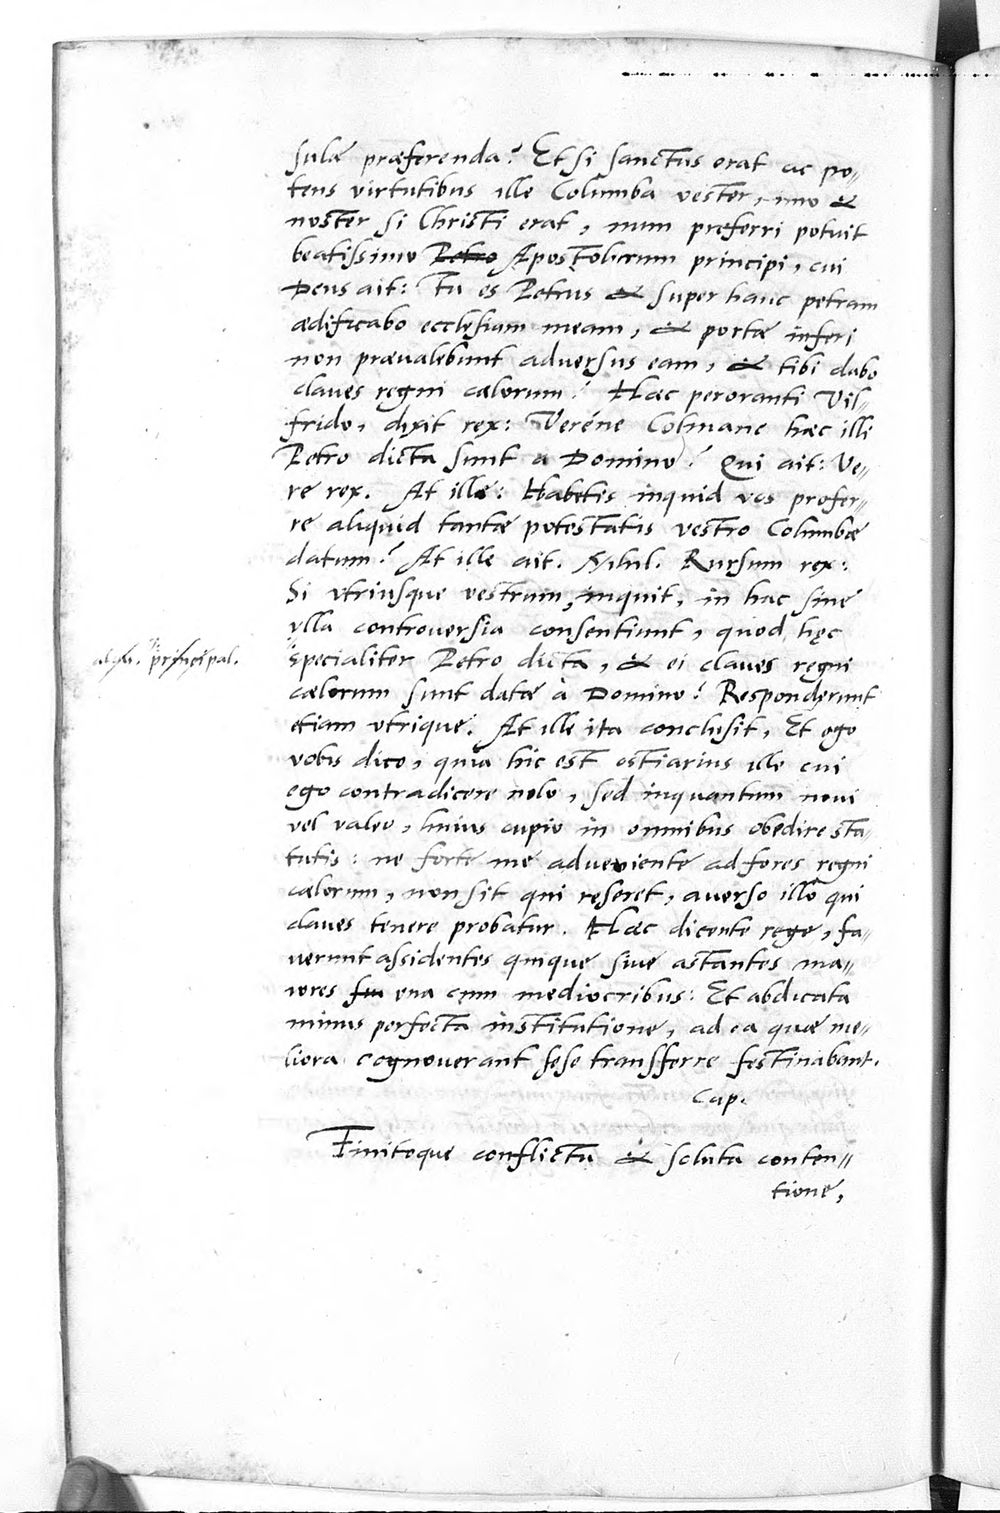 sulæ præferenda? Et si sanctus erat ac po-
tens virtutibus ille Columba vester, imo &
noster si Christi erat, num præferri potuit
beatissimo Petro Apostolorum principi, cui
Deus ait: Tu es Petrus & super hanc petram
ædificabo ecclesiam meam, & portæ inferi
non prævalebunt adversus eam, & tibi dabo
claves regni cælorum? Hæc peroranti Vil-
frido, dixit rex: Veréne Colmane hæc illi
Petro dicta sunt a Domino? Qui ait: Ve-
re rex. At ille: Habetis inquid vos profer-
re aliquid tantæ potestatis vestro Columbæ
datum? At ille ait. Nihil. Rursum rex:
Si vtriusque vestrum, inquit, in hac sine
vlla controversia consentiunt, quod hęc
specialiter Petro dicta, & ei claves regni
principal.
cælorum sunt datæ à Domino? Responderunt
etiam vtrique. At ille ita conclusit, Et ego
vobis dico, quia hic est ostiarius ille cui
ego contradicere nolo, sed inquantum novi
vel valeo, huius cupio in omnibus obedire sta-
tutis: ne forte me adveniente ad fores regni
cælorum, non sit qui reseret, averso illo qui
claves tenere probatur. Hæc dicente rege, fa-
verunt assidentes quique sive astantes ma-
iores una cum mediocribus: Et abdicata
minus perfecta institutione, ad ea quæ me-
liora cognoverant sese transferre festinabant.
Cap.
Finitoque conflictu & soluta conten-
tione,